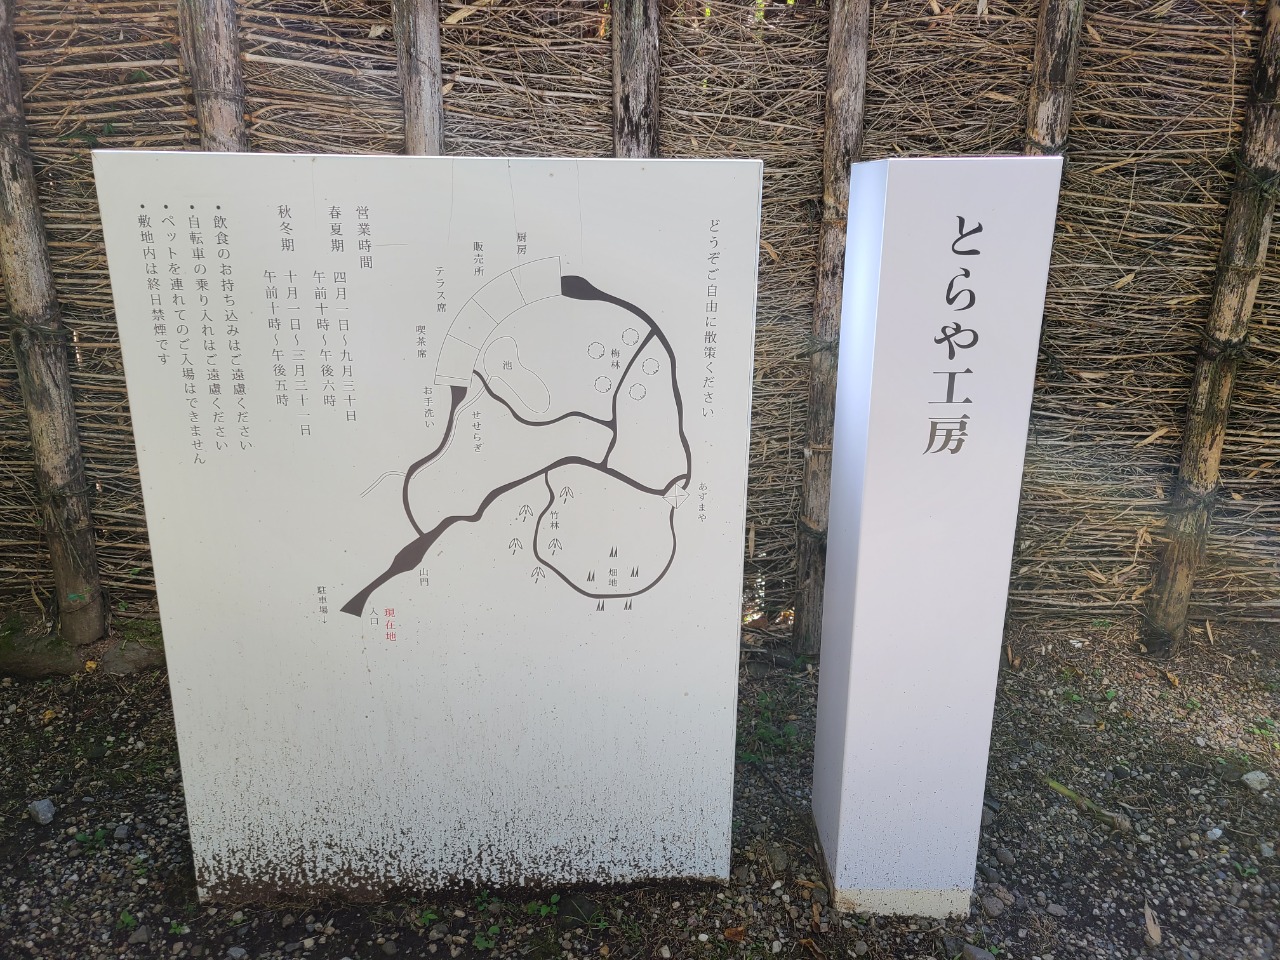 とらや工房
どうぞご自由に散策ください
厨房
販売所
テラス席
喫茶席
お手洗い
せせらぎ
池
梅林
あずまや
竹林
畑地
山門
現在地
入口
駐車場↓
営業時間
春夏期 四月一日〜九月三十日
午前十時〜午後六時
秋冬期 十月一日〜三月三十一日
午前十時〜午後五時
・飲食のお持ち込みはご遠慮ください
・自転車の乗り入れはご遠慮ください
・ペットを連れてのご入場はできません
・敷地内は終日禁煙です